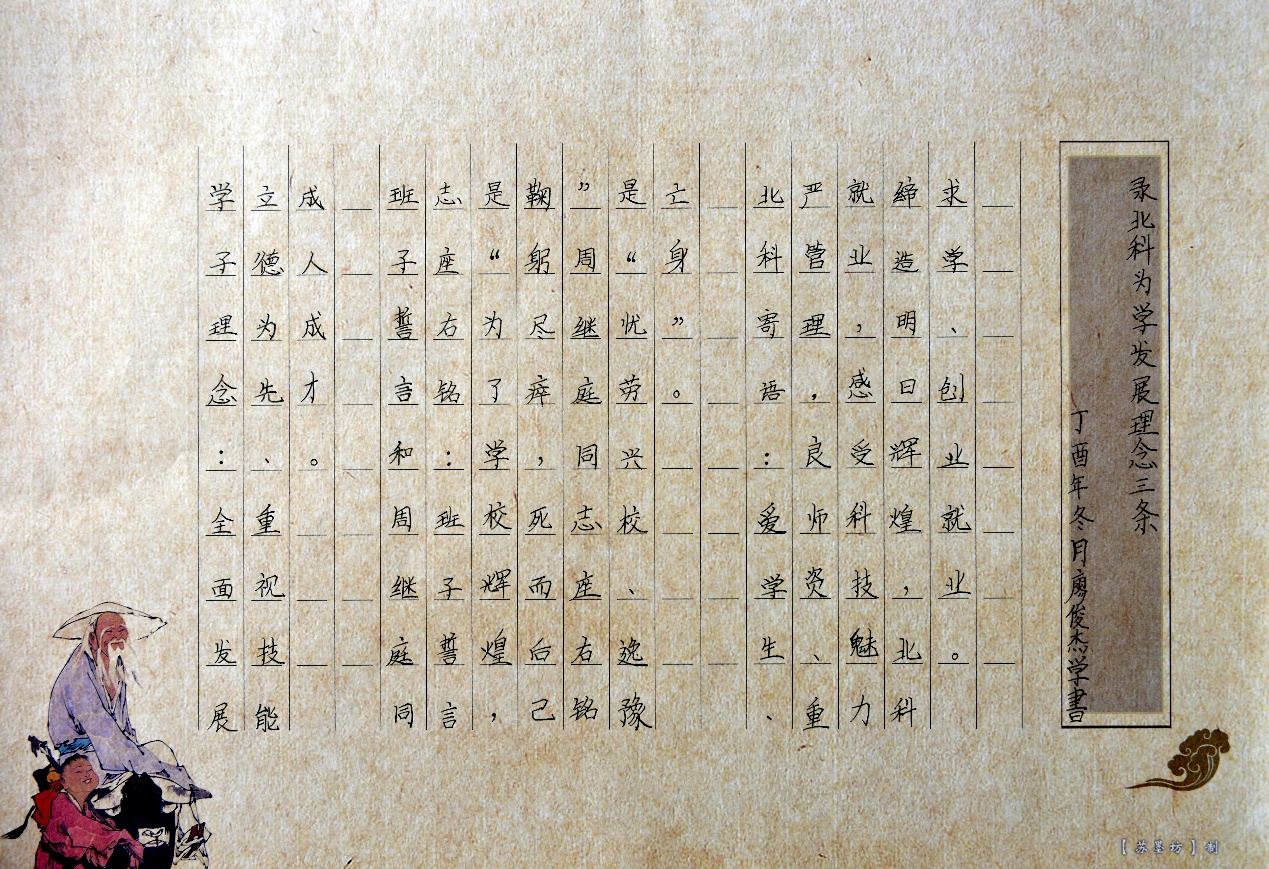 学子理念：全面发展
立德为先、重视技能
成人成才。
班子誓言和周继庭同
志座右铭：班子誓言
是“为了学校辉煌，
鞠躬尽瘁，死而后己
”周继庭同志座右铭
是“忧劳兴校、逸豫
亡身”。
北科寄语：爱学生、
严管理，良师资、重
就业，感受科技魅力
缔造明日辉煌，北科
求学、创业就业。
录北科为学发展理念三条
丁酉年冬月廖俊杰学書
【苏墨坊】制